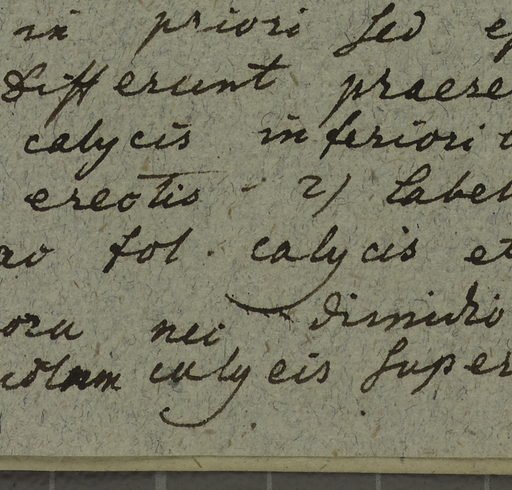 in priori sed
differunt praese
calycis inferiori
erectis - 2) label
fol. calycis et
nec dimidio
calycis super